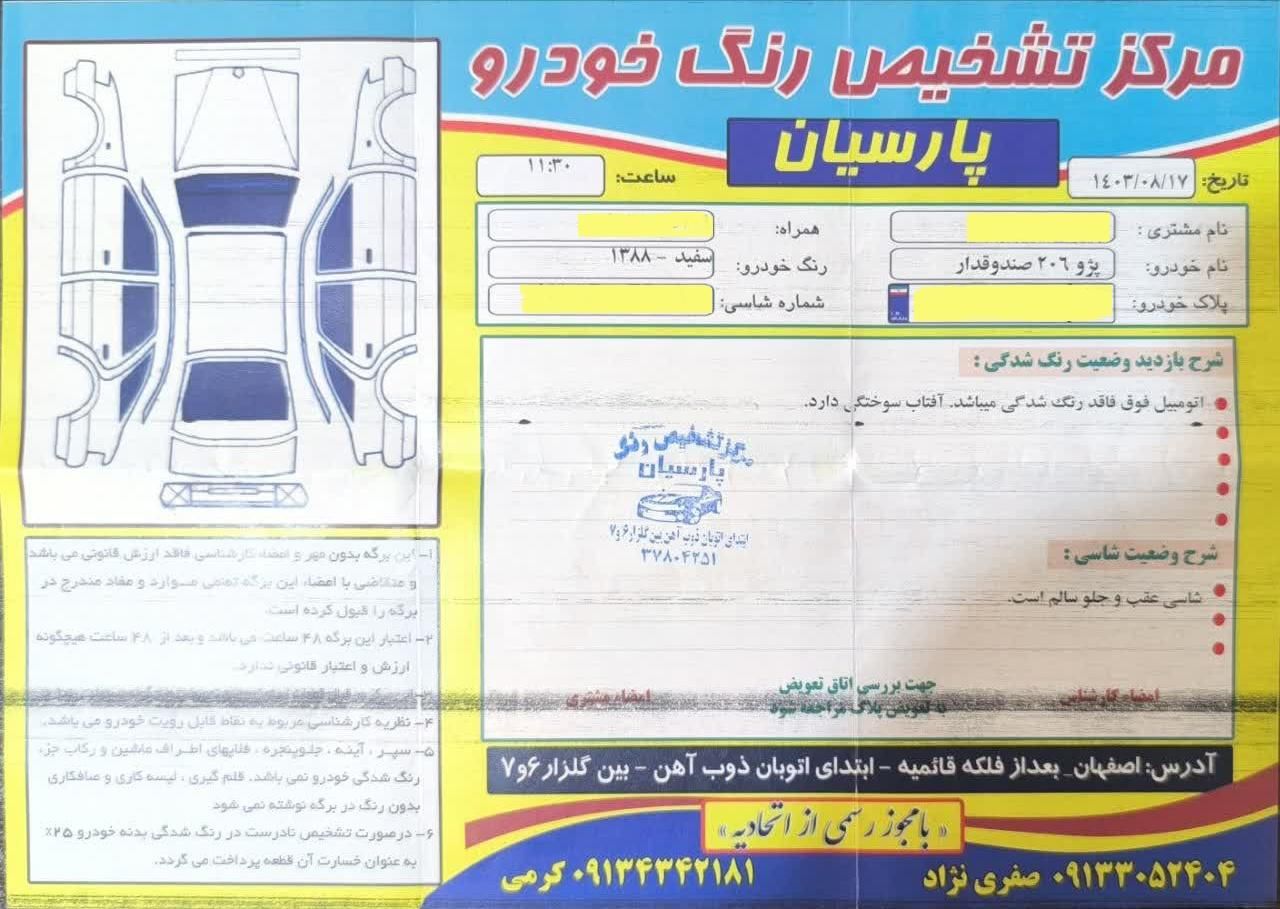 مرکز تشخیص رنگ خودرو
پارسیان
تاریخ: ۱٤۰۳/۰۸/۱۷
ساعت: ۱۱:۳۰
نام مشتری :
همراه:
نام خودرو: پژو ۲۰٦ صندوقدار
رنگ خودرو: سفید - ۱۳۸۸
پلاک خودرو:
شماره شاسی:
شرح بازدید وضعیت رنگ شدگی :
اتومبیل فوق فاقد رنگ شدگی میباشد. آفتاب سوختگی دارد.
مرکز تشخیص رنگ
پارسیان
ابتدای اتوبان ذوب آهن بین گلزار ۶ و ۷
۳۷۸۰۴۲۵۱
شرح وضعیت شاسی :
شاسی عقب و جلو سالم است.
امضاء کارشناس
جهت بررسی اتاق تعویض
به تعویض پلاک مراجعه شود
امضاء مشتری
۱- این برگه بدون مهر و امضاء کارشناسی فاقد ارزش قانونی می باشد
و متقاضی با امضاء این برگه تمامی موارد و مفاد مندرج در
برگه را قبول کرده است.
۲- اعتبار این برگه ۴۸ ساعت می باشد و بعد از ۴۸ ساعت هیچگونه
ارزش و اعتبار قانونی ندارد.
۴- نظریه کارشناسی مربوط به نقاط قابل رویت خودرو می باشد.
۵- سپر ، آینه ، جلوپنجره ، فلاپهای اطراف ماشین و رکاب جزء
رنگ شدگی خودرو نمی باشد. قلم گیری ، لیسه کاری و صافکاری
بدون رنگ در برگه نوشته نمی شود
۶- درصورت تشخیص نادرست در رنگ شدگی بدنه خودرو ۲۵٪
به عنوان خسارت آن قطعه پرداخت می گردد.
آدرس: اصفهان_ بعداز فلکه قائمیه - ابتدای اتوبان ذوب آهن - بین گلزار ۶ و ۷
« با مجوز رسمی از اتحادیه »
۰۹۱۳۳۰۵۲۴۰۴ صفری نژاد
۰۹۱۳۴۳۴۲۱۸۱ کرمی